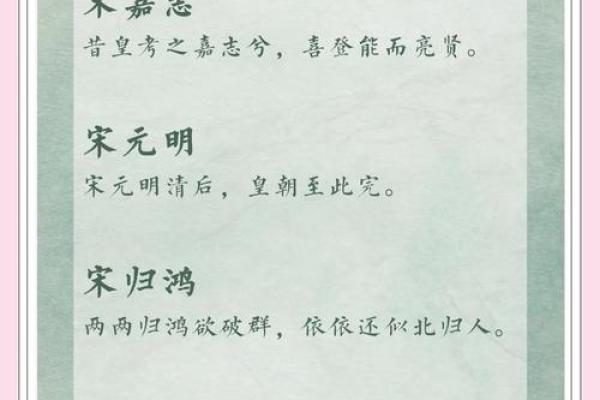 宋嘉志
昔皇考之嘉志兮，喜登能而亮贤。
宋元明
宋元明清后，皇朝至此完。
宋归鸿
两两归鸿欲破群，依依还似北归人。